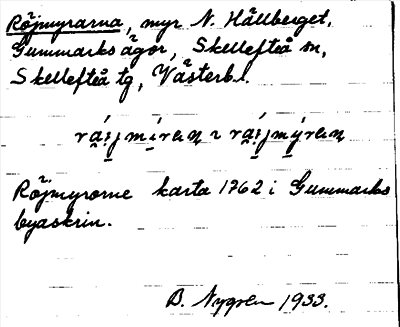 Röjmyrarna, myr N. Hällberget,
Gummarks ägor, Skellefteå sn,
Skellefteå tg, Västerb. l.
Röjmyrorne karta 1762 i Gummarks
byaskrin.
B. Nygren 1933.